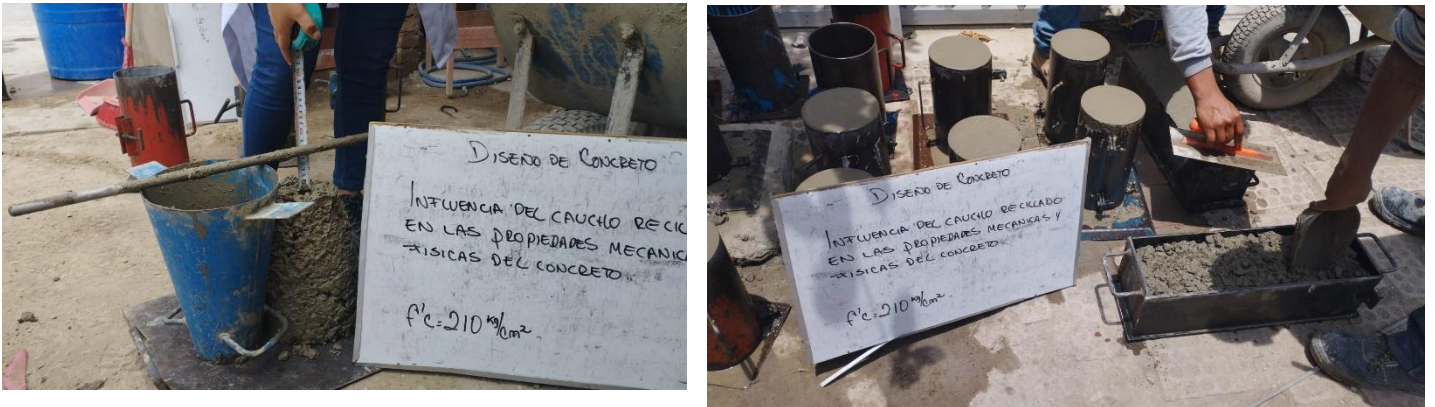 DISEÑO DE CONCRETO
INFLUENCIA DEL CAUCHO RECIC
EN LAS PROPIEDADES MECANICA
FISICAS DEL CONCRETO
f'c=210 kg/cm²
DISEÑO DE CONCRETO
INFLUENCIA DEL CAUCHO RECICLADO
EN LAS PROPIEDADES MECANICAS Y
FISICAS DEL CONCRETO
f'c=210 kg/cm²